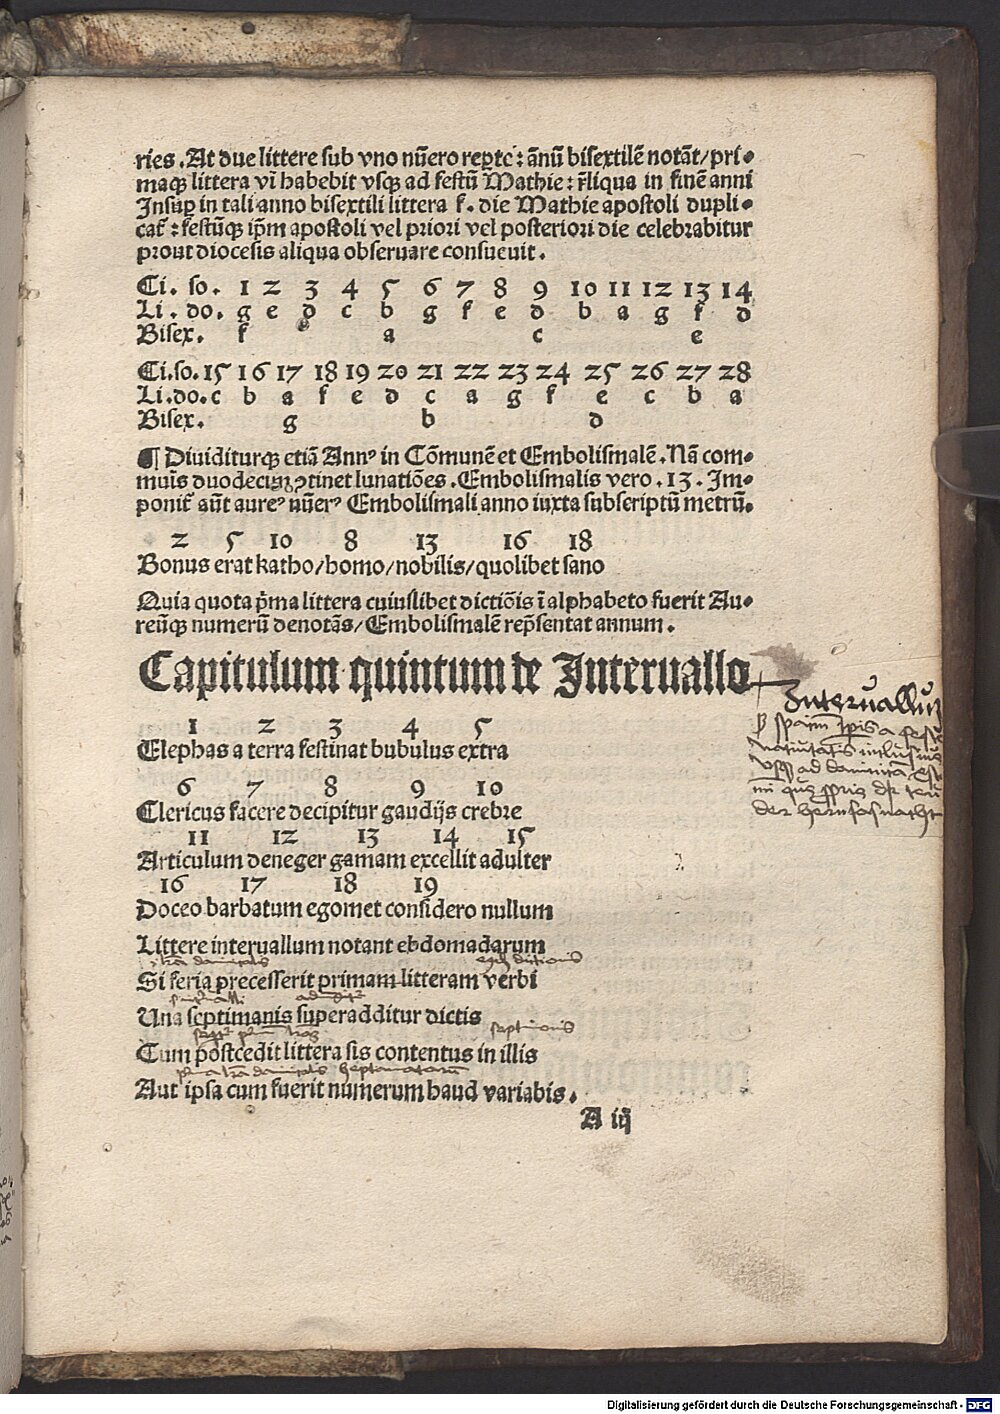 ries. At due littere sub vno nũero reptc: ãnũ bisextilẽ notãt/pri⸗
maqꝫ littera vĩ habebit vsqꝫ ad festũ Mathie: r̃liqua in finẽ anni
Insuꝑ in tali anno bisextili littera f. die Mathie apostoli dupli⸗
cat̃: festũqꝫ ip̃m apostoli vel priori vel posteriori die celebrabitur
prout diocesis aliqua obseruare consueuit.
Ci. so. 1 2 3 4 5 6 7 8 9 10 11 12 13 14
Li. do. g e d c b g f e d b a g f d
Bisex. f a c e
Ci.so. 15 16 17 18 19 20 21 22 23 24 25 26 27 28
Li.do. c b a f e d c a g f e c b a
Bisex. g b d
¶ Diuiditurqꝫ etiã Annꝰ in Cõmunẽ et Embolismalẽ. Nã com⸗
mui̅s duodecim ꝯtinet lunatiões. Embolismalis vero .13. Im⸗
ponit̃ aũt aureꝰ nũerꝰ Embolismali anno iuxta subscriptũ metrũ.
2 5 10 8 13 16 18
Bonus erat katho/homo/nobilis/quolibet sano
Quia quota p̃ma littera cuiuslibet dictiõis ĩ alphabeto fuerit Au⸗
reũqꝫ numerũ denotãs/Embolismalẽ rep̃sentat annum.
Capitulum quintum de Interuallo
Interuallũ
1 2 3 4 5
Elephas a terra festinat bubulus extra
6 7 8 9 10
Clericus facere decipitur gaudijs crebre
11 12 13 14 15
Articulum deneger gamam excellit adulter
16 17 18 19
Doceo barbatum egomet considero nullum
Littere interuallum notant ebdomadarum
Si feria precesserit primam litteram verbi
Una septimanis superadditur dictis
Cum postcedit littera sis contentus in illis
Aut ipsa cum fuerit numerum haud variabis.
A iij
Digitalisierung gefördert durch die Deutsche Forschungsgemeinschaft - DFG